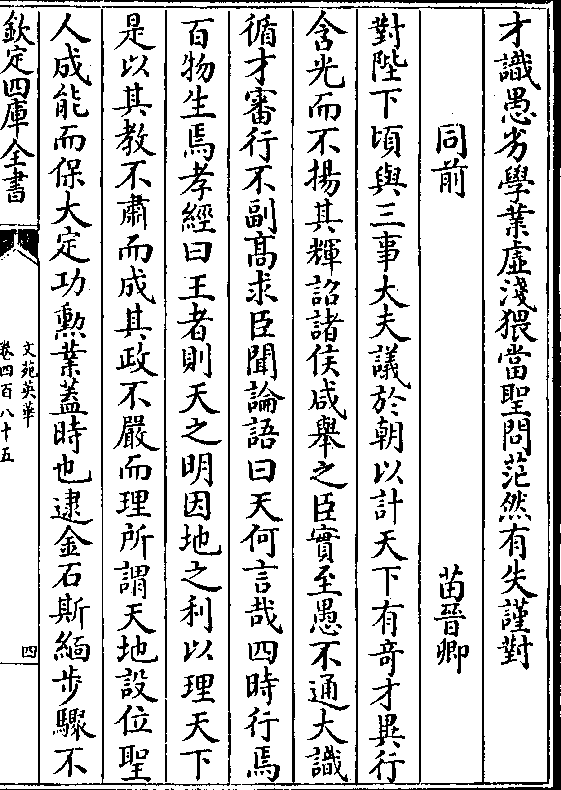 才識愚劣學業虛淺猥當聖問茫然有失謹對
同前 苗晉卿
對陛下頃與三事大夫議於朝以計天下有竒才異行
含光而不揚其輝詔諸侯咸舉之臣實至愚不通大識
循才審行不副髙求臣聞論語曰天何言哉四時行焉
百物生焉孝經曰王者則天之明因地之利以理天下
是以其教不肅而成其政不嚴而理所謂天地設位聖
人成能而保大定功勲業蓋時也逮金石斯緬步驟不
欽定四庫全書
文苑英華
卷四百八十五
四